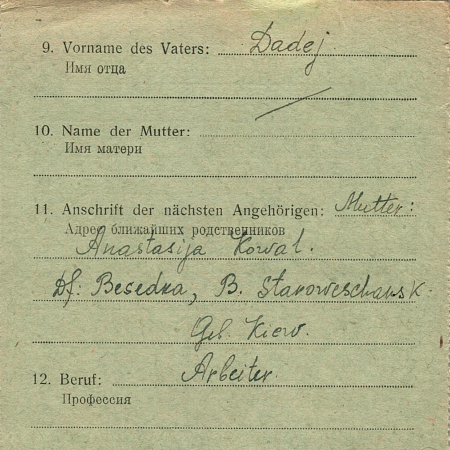 9. Vorname des Vaters: Dadej
Имя отца
10. Name der Mutter:
Имя матери
11. Anschrift der nächsten Angehörigen: Mutter:
Адрес ближайших родственников
Anastasija Kowal.
Df: Besedka, B. Staroweschansk.
Geb. Kiew.
12. Beruf: Arbeiter.
Профессия